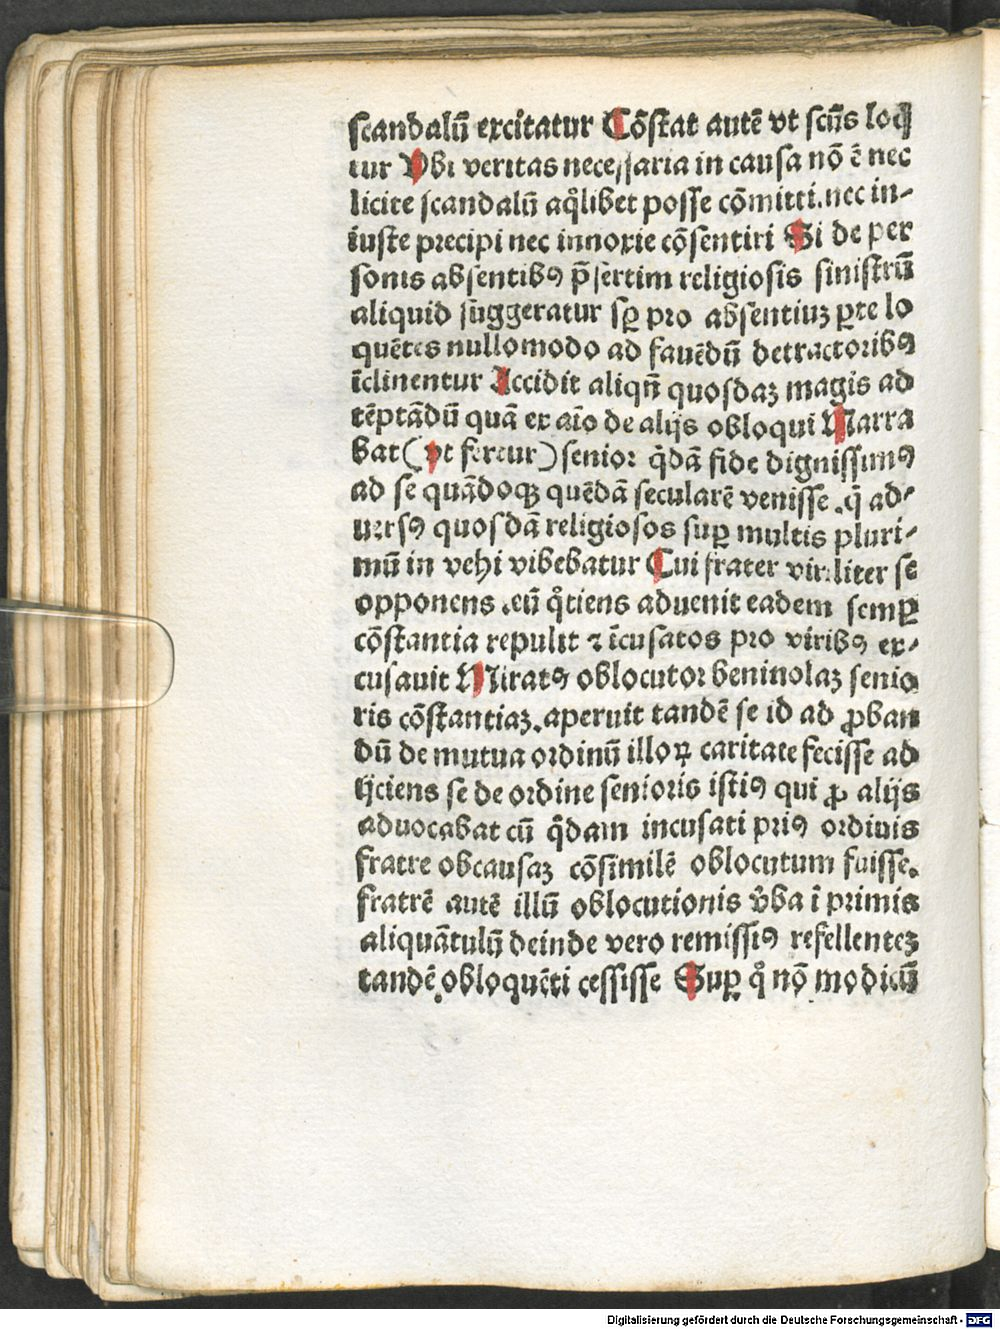 scandalū excitatur Cōstat autē vt scīs loq̄
tur Vbi veritas necessaria in causa nō ē nec
licite scandalū aq̄libet posse cōmitti.nec in-
iuste precipi nec innoxie cōsentiri Si de per
sonis absentibꝰ p̄sertim religiosis sinistrū
aliquid suggeratur sꝑ pro absentiuꝫ ꝑte lo
quētes nullomodo ad fauēdū detractoribꝰ
īclinentur Accidit aliqn̄ quosdaꝫ magis ad
tēptādū quā ex aīo de alijs obloqui Narra
bat (vt fertur) senior q̄dā fide dignissimꝰ
ad se quādoqꝫ quēdā secularē venisse .q̄ ad-
uersꝰ quosdā religiosos suꝑ multis pluri-
mū in vehi videbatur Cui frater viriliter se
opponens .cū q̊tiens aduenit eadem semꝑ
cōstantia repulit ⁊ īcusatos pro viribꝰ ex-
cusauit Miratꝰ oblocutor beniuolaꝫ senio
ris cōstantiaꝫ.aperuit tandē se id ad ꝓban
dū de mutua ordinū illoꝝ caritate fecisse ad
ijciens se de ordine senioris istiꝰ qui ꝓ alijs
aduocabat cū q̄dam incusati priꝰ ordinis
fratre obcausaꝫ cōsimilē oblocutum fuisse.
fratrē autē illū oblocutionis v̄ba ī primis
aliquātulū deinde vero remissiꝰ refellenteꝫ
tandē obloquēti cessisse Suꝑ q̊ nō modicū
Digitalisierung gefördert durch die Deutsche Forschungsgemeinschaft - DFG